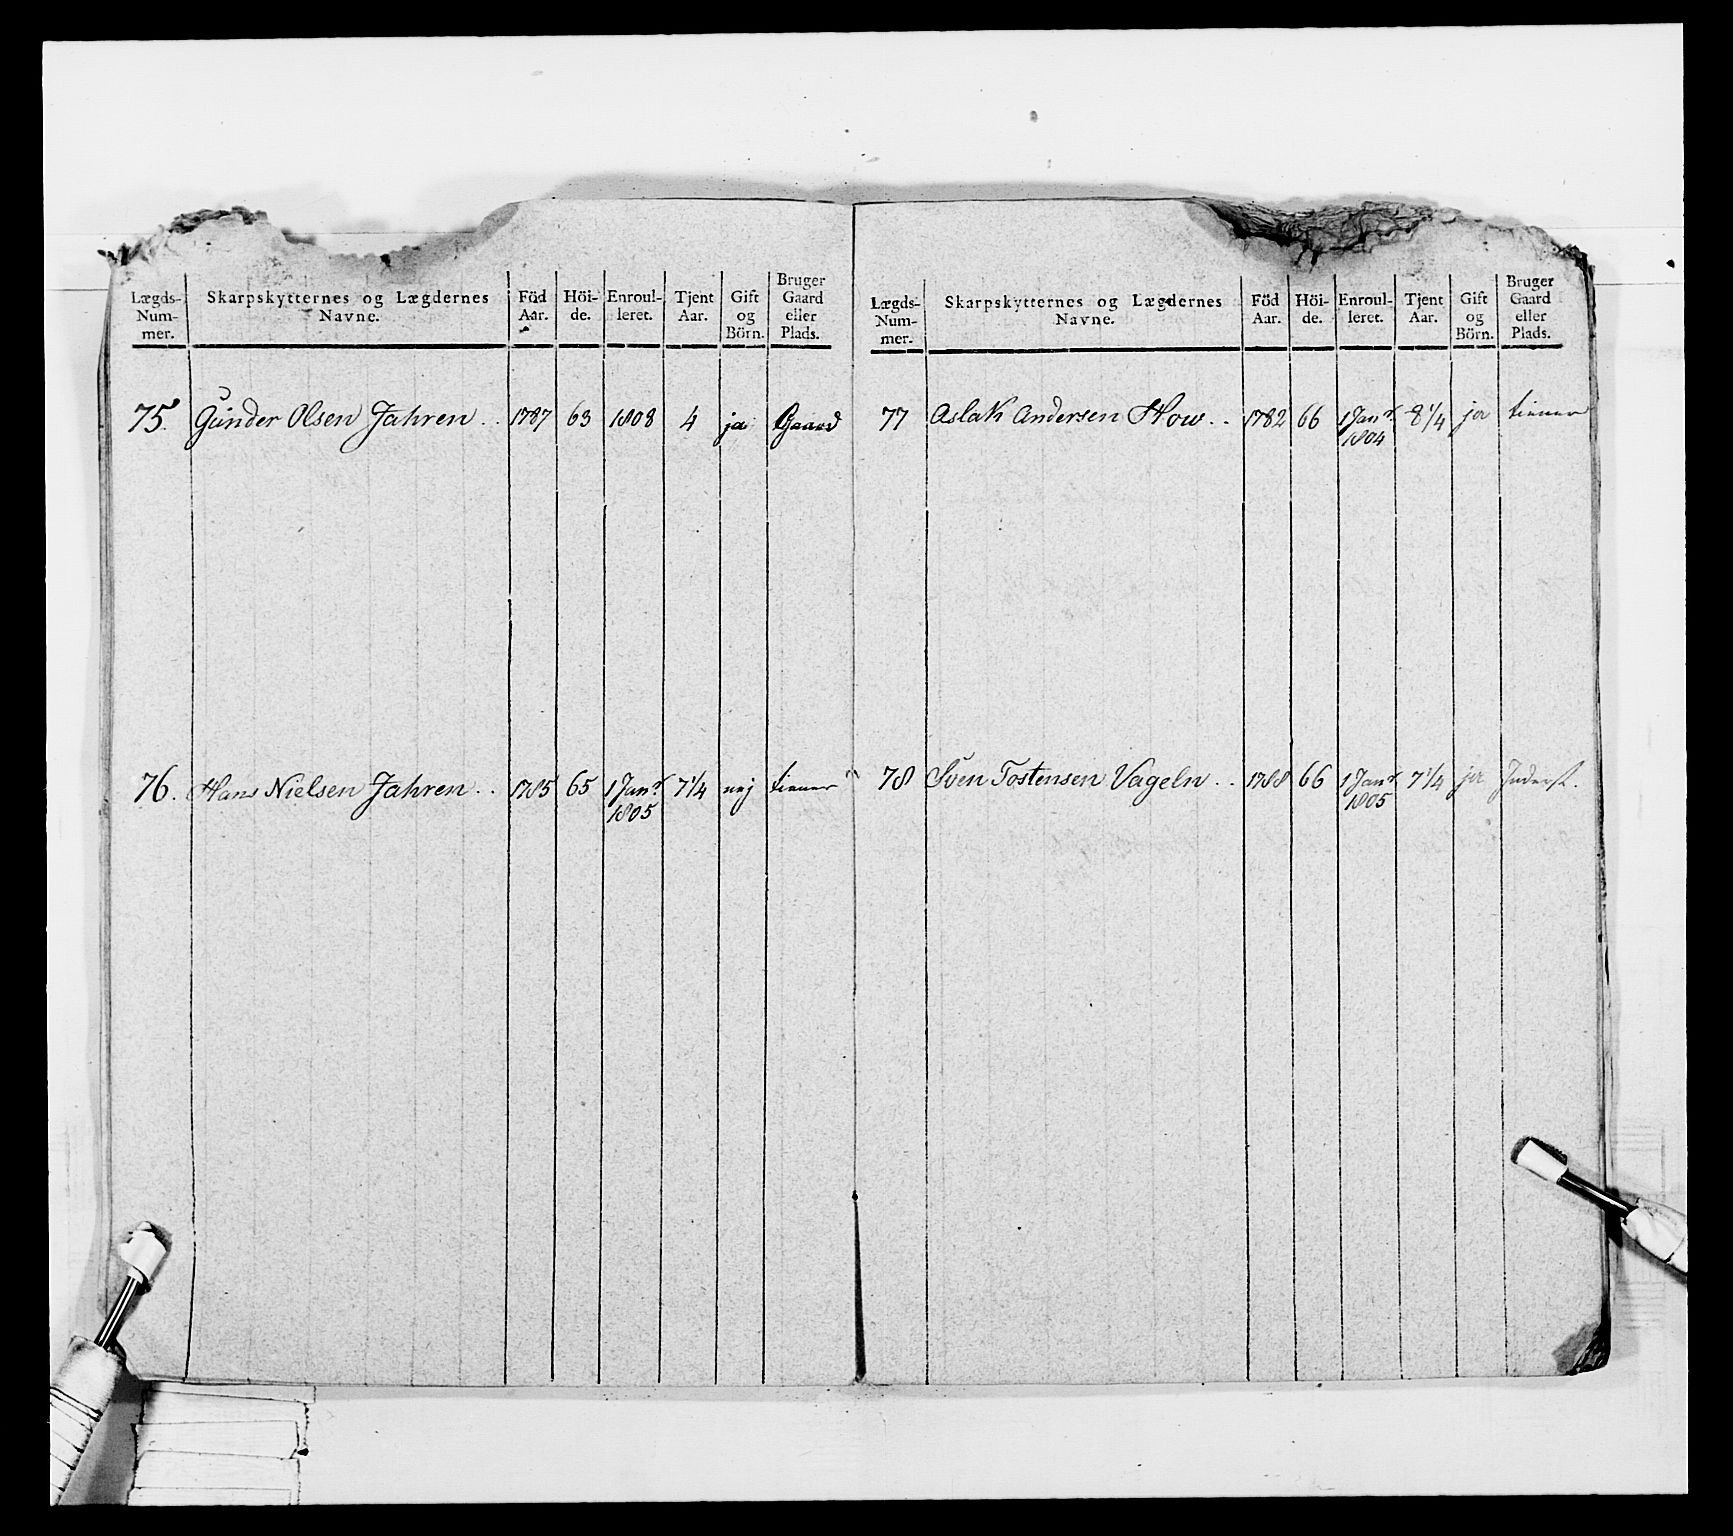 Lægds- Num- mer. | Skarpskytternes og Lægdernes Navne. | Föd Aar. | Höi- de. | Enroul- leret. | Tjent Aar. | Gift og Börn. | Bruger Gaard eller Plads.
75. Gunder Olsen Jahren . . 1787 63 1808 4 ja Gaard
76. Hans Nielsen Jahren . . 1785 65 1 Janr 7 1/4 nej tiener
1805
Lægds- Num- mer. | Skarpskytternes og Lægdernes Navne. | Föd Aar. | Höi- de. | Enroul- leret. | Tjent Aar. | Gift og Börn. | Bruger Gaard eller Plads.
77 Aslak Andersen How . . 1782 66 1 Janr 8 1/4 ja tiener
1804
78 Sven Tostensen Vageln . . 1788 66 1 Janr 7 1/4 ja Inderst.
1805